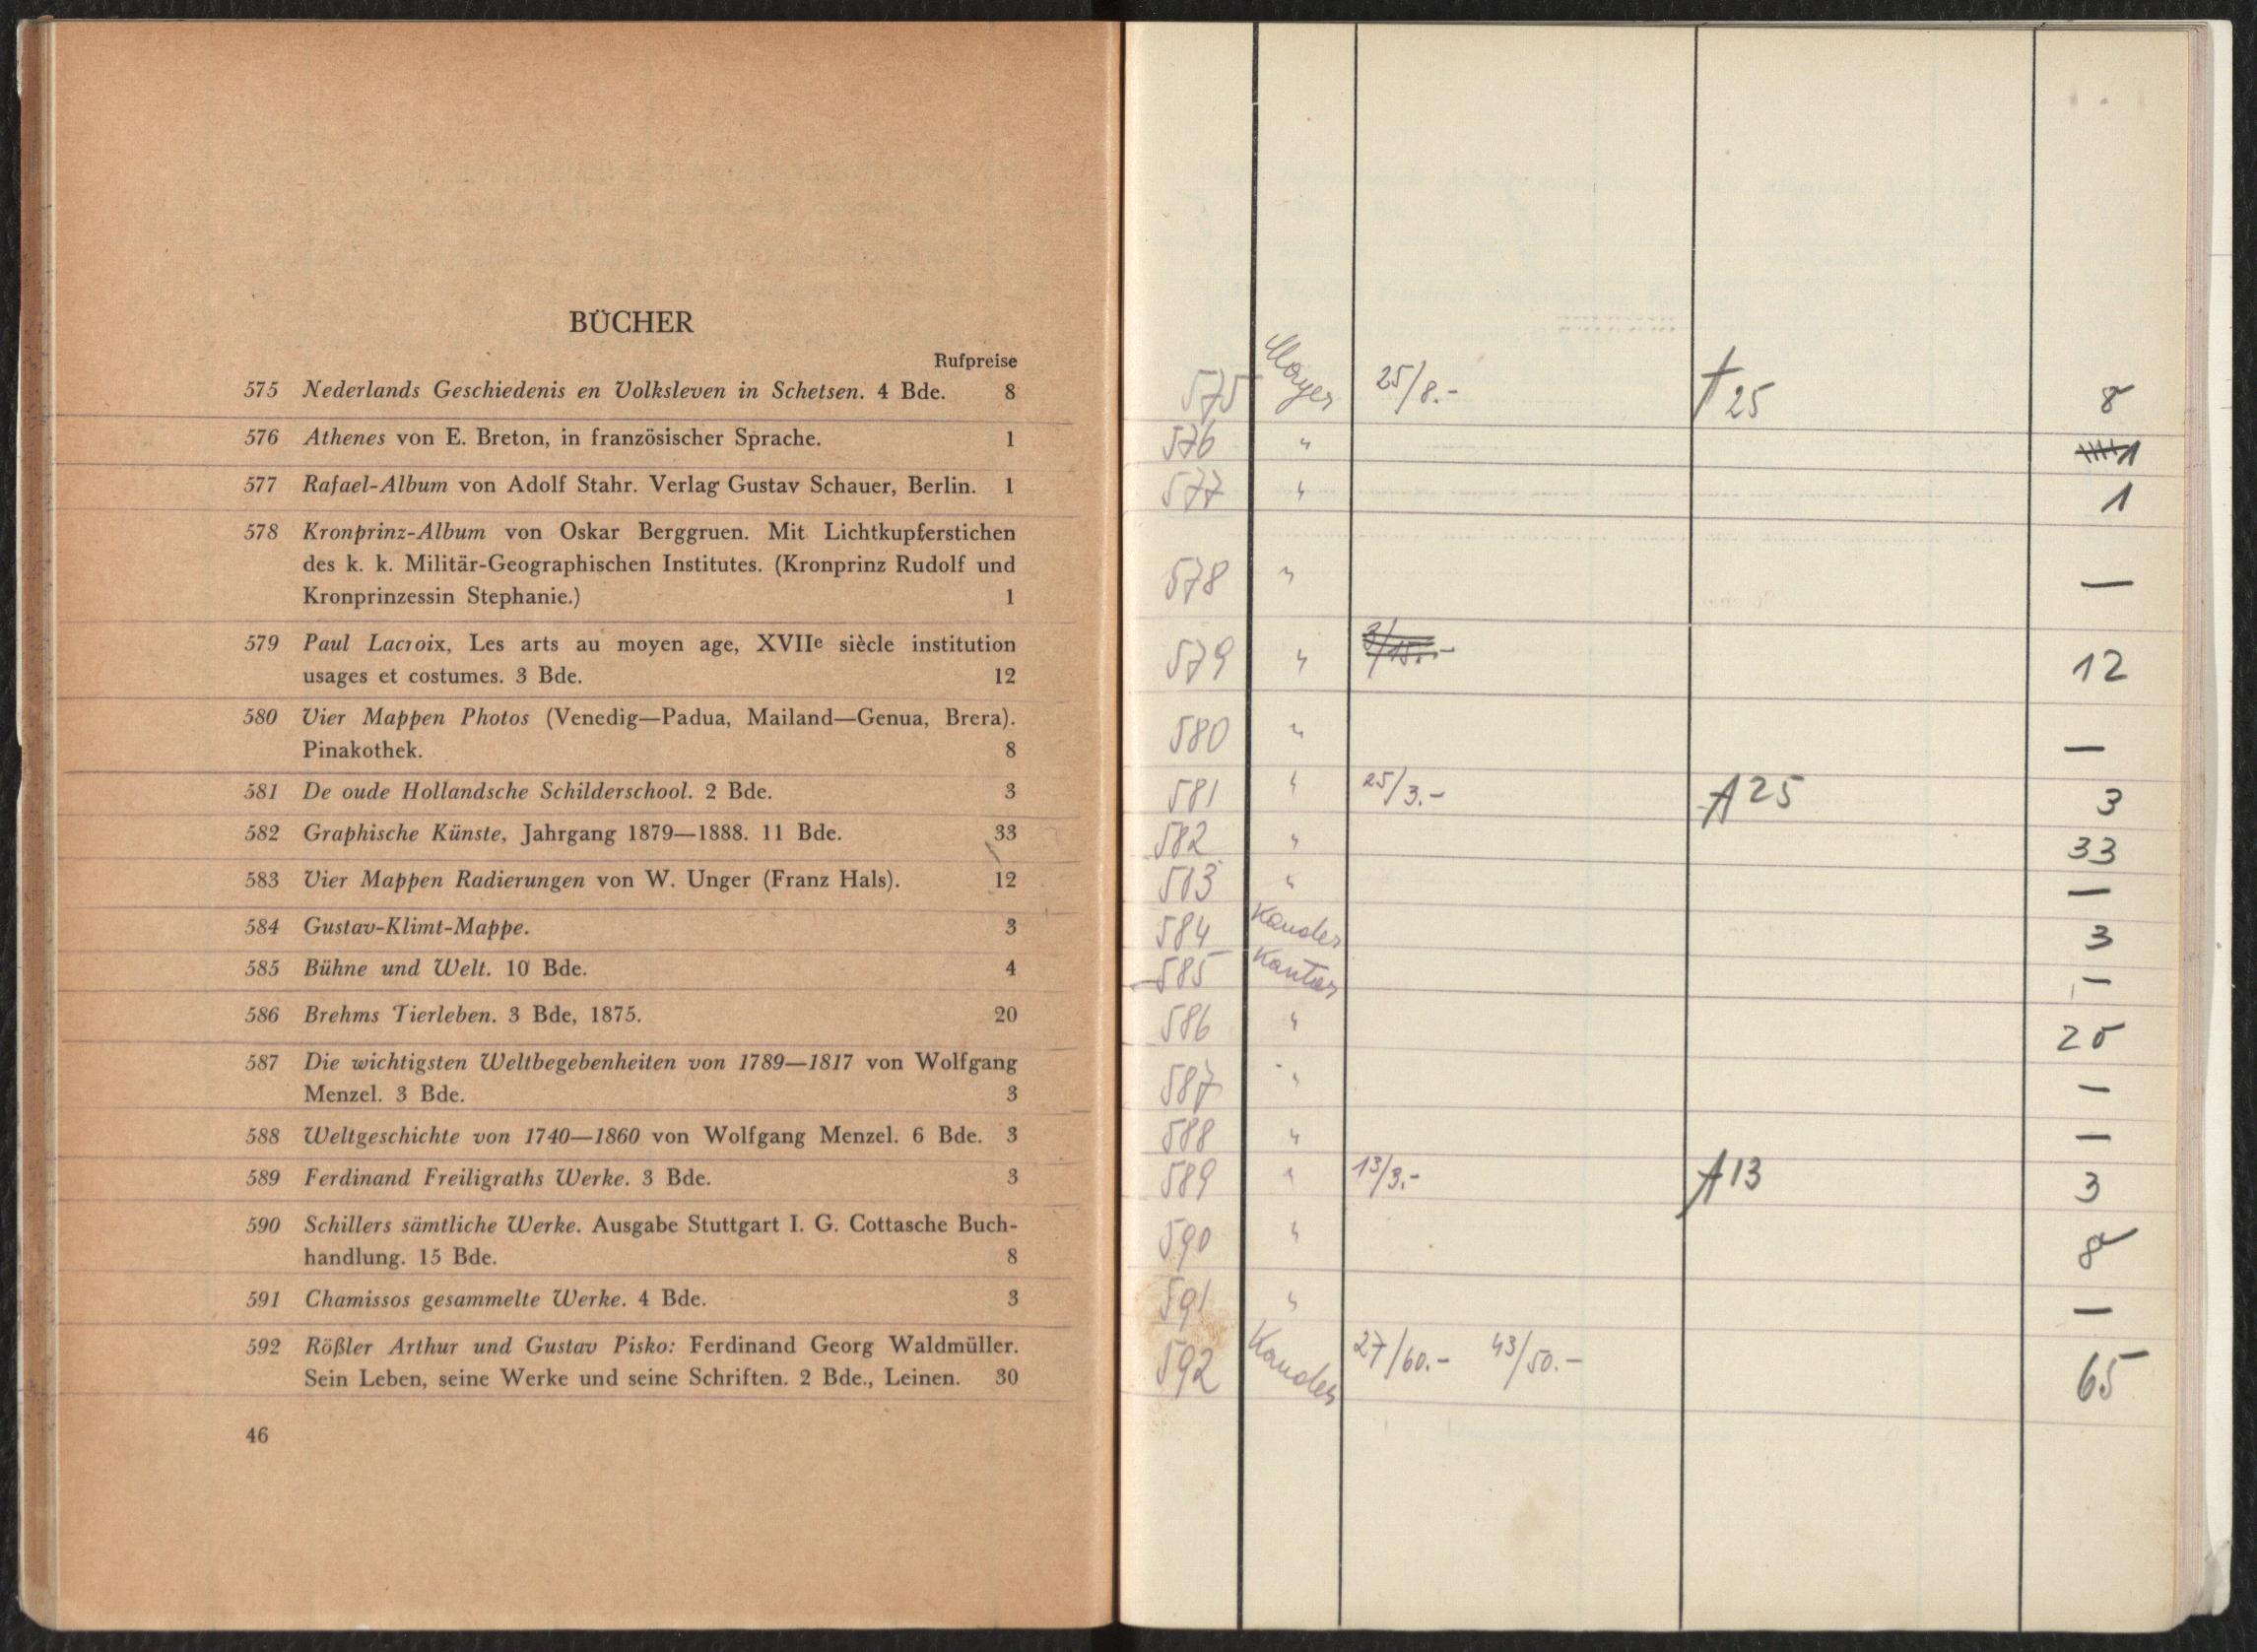 BÜCHER
Rufpreise
575 Nederlands Geschiedenis en Volksleven in Schetsen. 4 Bde. 8
576 Athenes von E. Breton, in französischer Sprache. 1
577 Rafael-Album von Adolf Stahr. Verlag Gustav Schauer, Berlin. 1
578 Kronprinz-Album von Oskar Berggruen. Mit Lichtkupferstichen
des k. k. Militär-Geographischen Institutes. (Kronprinz Rudolf und
Kronprinzessin Stephanie.) 1
579 Paul Lacroix, Les arts au moyen age, XVIIe siècle institution
usages et costumes. 3 Bde. 12
580 Vier Mappen Photos (Venedig—Padua, Mailand—Genua, Brera).
Pinakothek. 8
581 De oude Hollandsche Schilderschool. 2 Bde. 3
582 Graphische Künste, Jahrgang 1879—1888. 11 Bde. 33
583 Vier Mappen Radierungen von W. Unger (Franz Hals). 12
584 Gustav-Klimt-Mappe. 3
585 Bühne und Welt. 10 Bde. 4
586 Brehms Tierleben. 3 Bde, 1875. 20
587 Die wichtigsten Weltbegebenheiten von 1789—1817 von Wolfgang
Menzel. 3 Bde. 3
588 Weltgeschichte von 1740—1860 von Wolfgang Menzel. 6 Bde. 3
589 Ferdinand Freiligraths Werke. 3 Bde. 3
590 Schillers sämtliche Werke. Ausgabe Stuttgart I. G. Cottasche Buch-
handlung. 15 Bde. 8
591 Chamissos gesammelte Werke. 4 Bde. 3
592 Rößler Arthur und Gustav Pisko: Ferdinand Georg Waldmüller.
Sein Leben, seine Werke und seine Schriften. 2 Bde., Leinen. 30
46
575 Mayer 25/8.- A 25 8
576 " 1
577 " 1
578 " —
579 " 12
580 " —
581 " 25/3.- A 25 3
582 " 33
583 " —
584 3
585 —
586 " 20
587 " —
588 " —
589 " 13/3.- A 13 3
590 " 8
591 " —
592 27/60.- 43/50.- 65